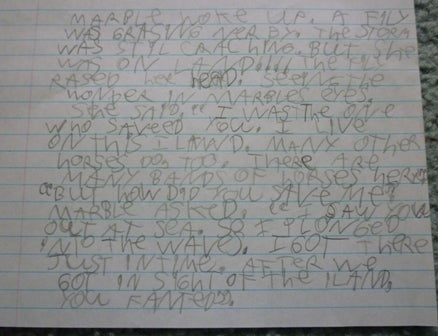 MARBLE WOKE UP. A FILY
WAS GRASING NERBY. THE STORM
WAS STIL CRACHING. BUT SHE
WAS ON LAND!!!! THE FILY
RASED her heAD. SEEING THE
WONDER IN MARBLES EYES.
She SAID. "I WAS The ONE
WhO SAVeED YOU. I LIVE
ON ThIS ILAND. MANY OTHER
hORSES DO, TOO. There ARE
MANY BANDS OF hORSES here."
"BUT hOW DID YOU SAVE ME?"
MARBLE ASKED. "I SAW YOU
OUT AT SEA. SO I PLONGED
INTO The WAVES. I GOT There
JUST IN TIME. AFTER WE
GOT IN SIGhT OF The ILAND,
YOU FANTED."